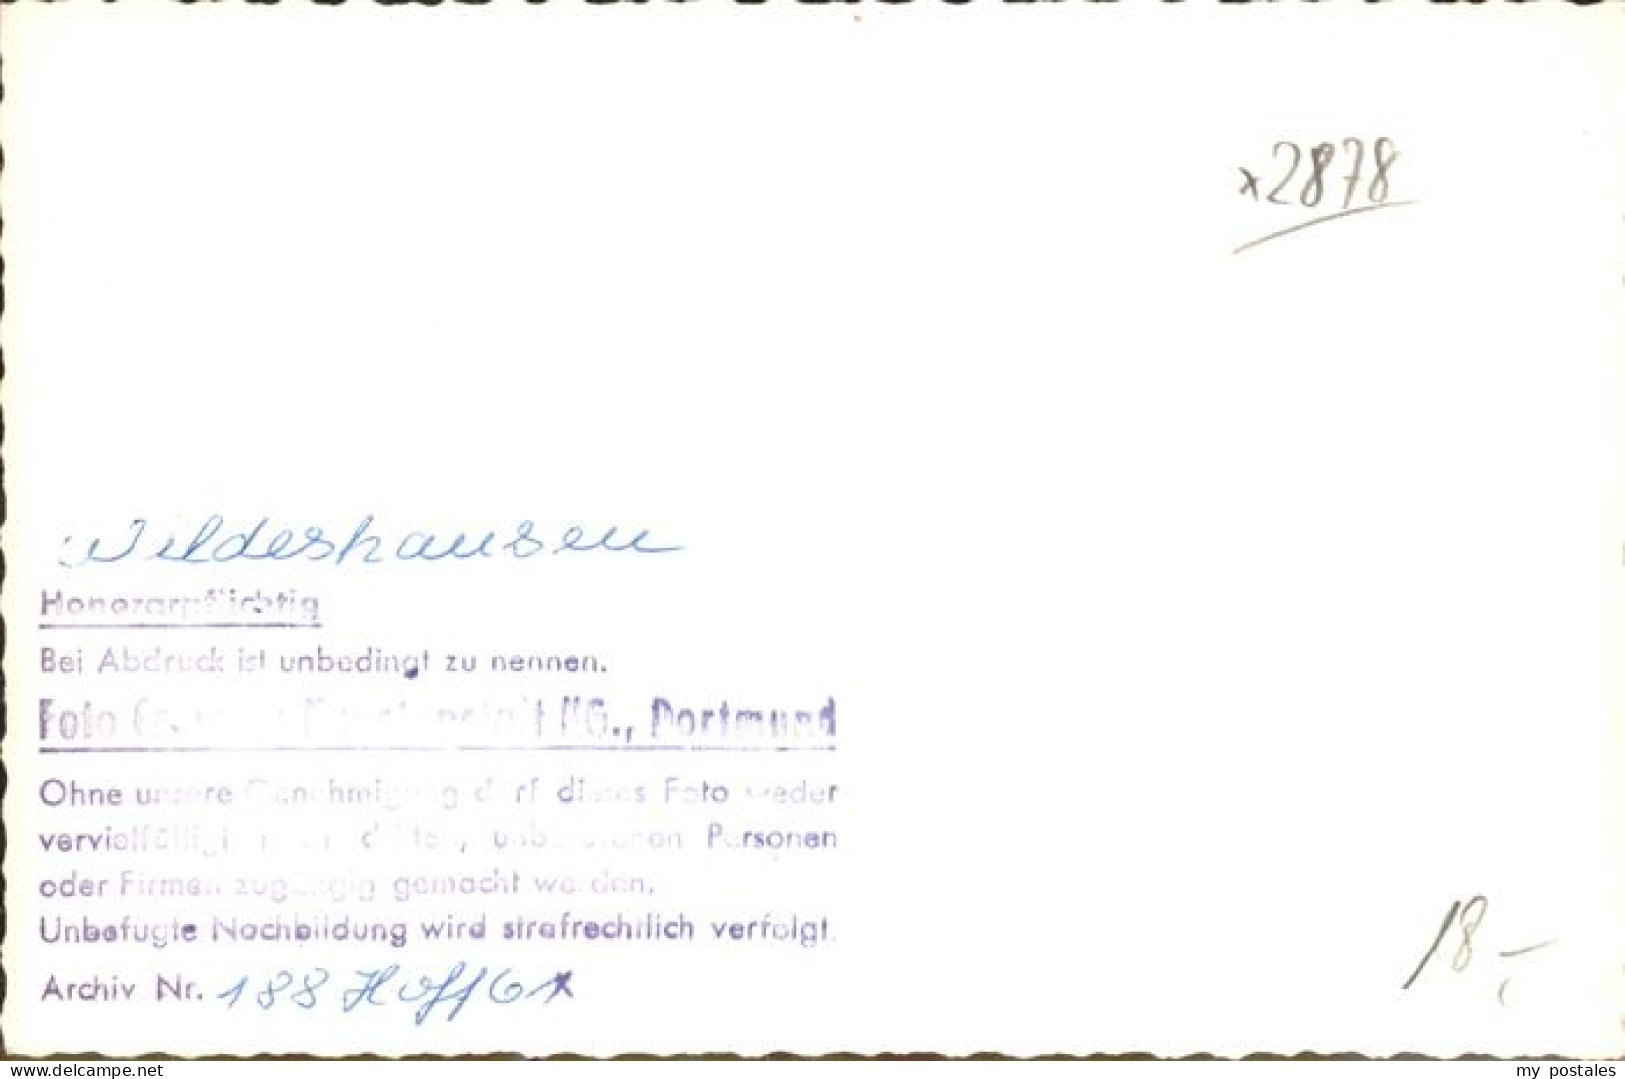 x2878
Wildeshausen
Honorarpflichtig
Bei Abdruck ist unbedingt zu nennen.
Foto KG., Dortmund
Ohne unsere Genehmigung darf dieses Foto weder
vervielfältigt noch dritten, unberufenen Personen
oder Firmen zugängig gemacht werden.
Unbefugte Nachbildung wird strafrechtlich verfolgt.
Archiv Nr. 188 Hoff 61
18,-
www.delcampe.net
my_postales